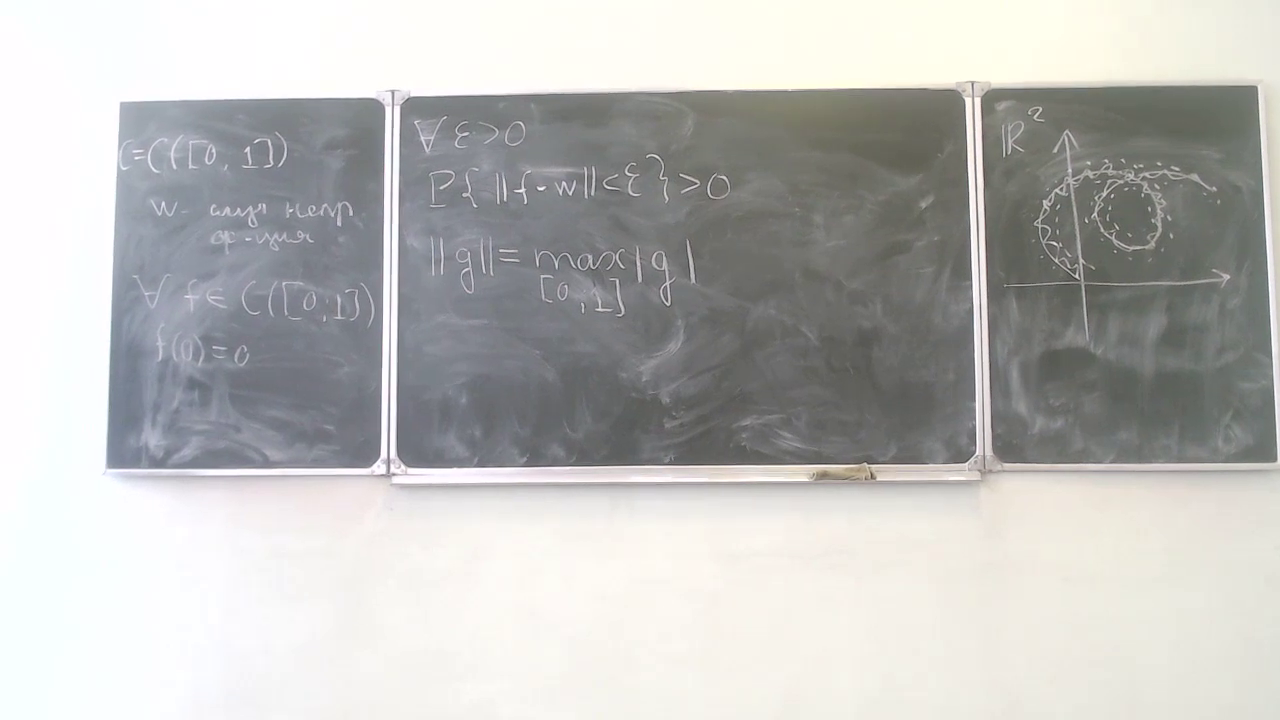 C=C([0,1])
w - случ непр
ф-ция
∀ f ∈ C([0,1])
f(0)=0
∀ ε>0
P{||f-w||<ε}>0
||g||= max |g|
[0,1]
ℝ²